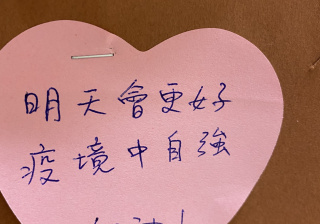 明天會更好
疫境中自強